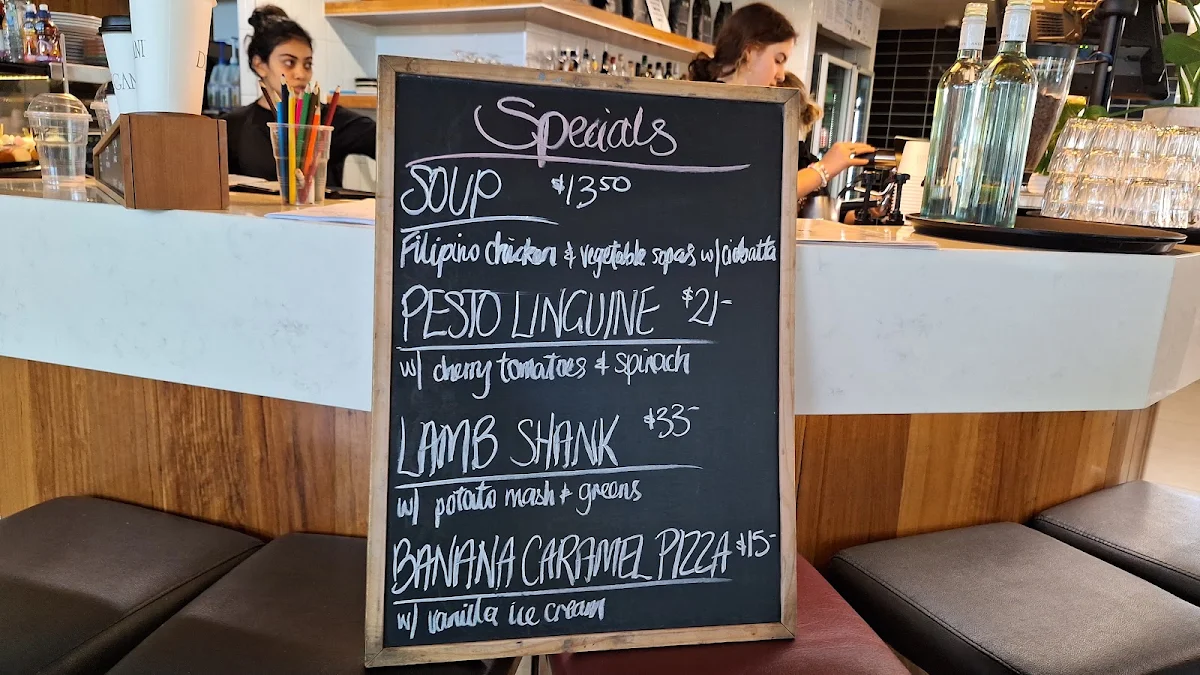 Specials
SOUP $13.50
Filipino chicken & vegetable sopas w/ ciabatta
PESTO LINGUINE $21-
w/ cherry tomatoes & spinach
LAMB SHANK $33-
w/ potato mash & greens
BANANA CARAMEL PIZZA $15-
w/ vanilla ice cream